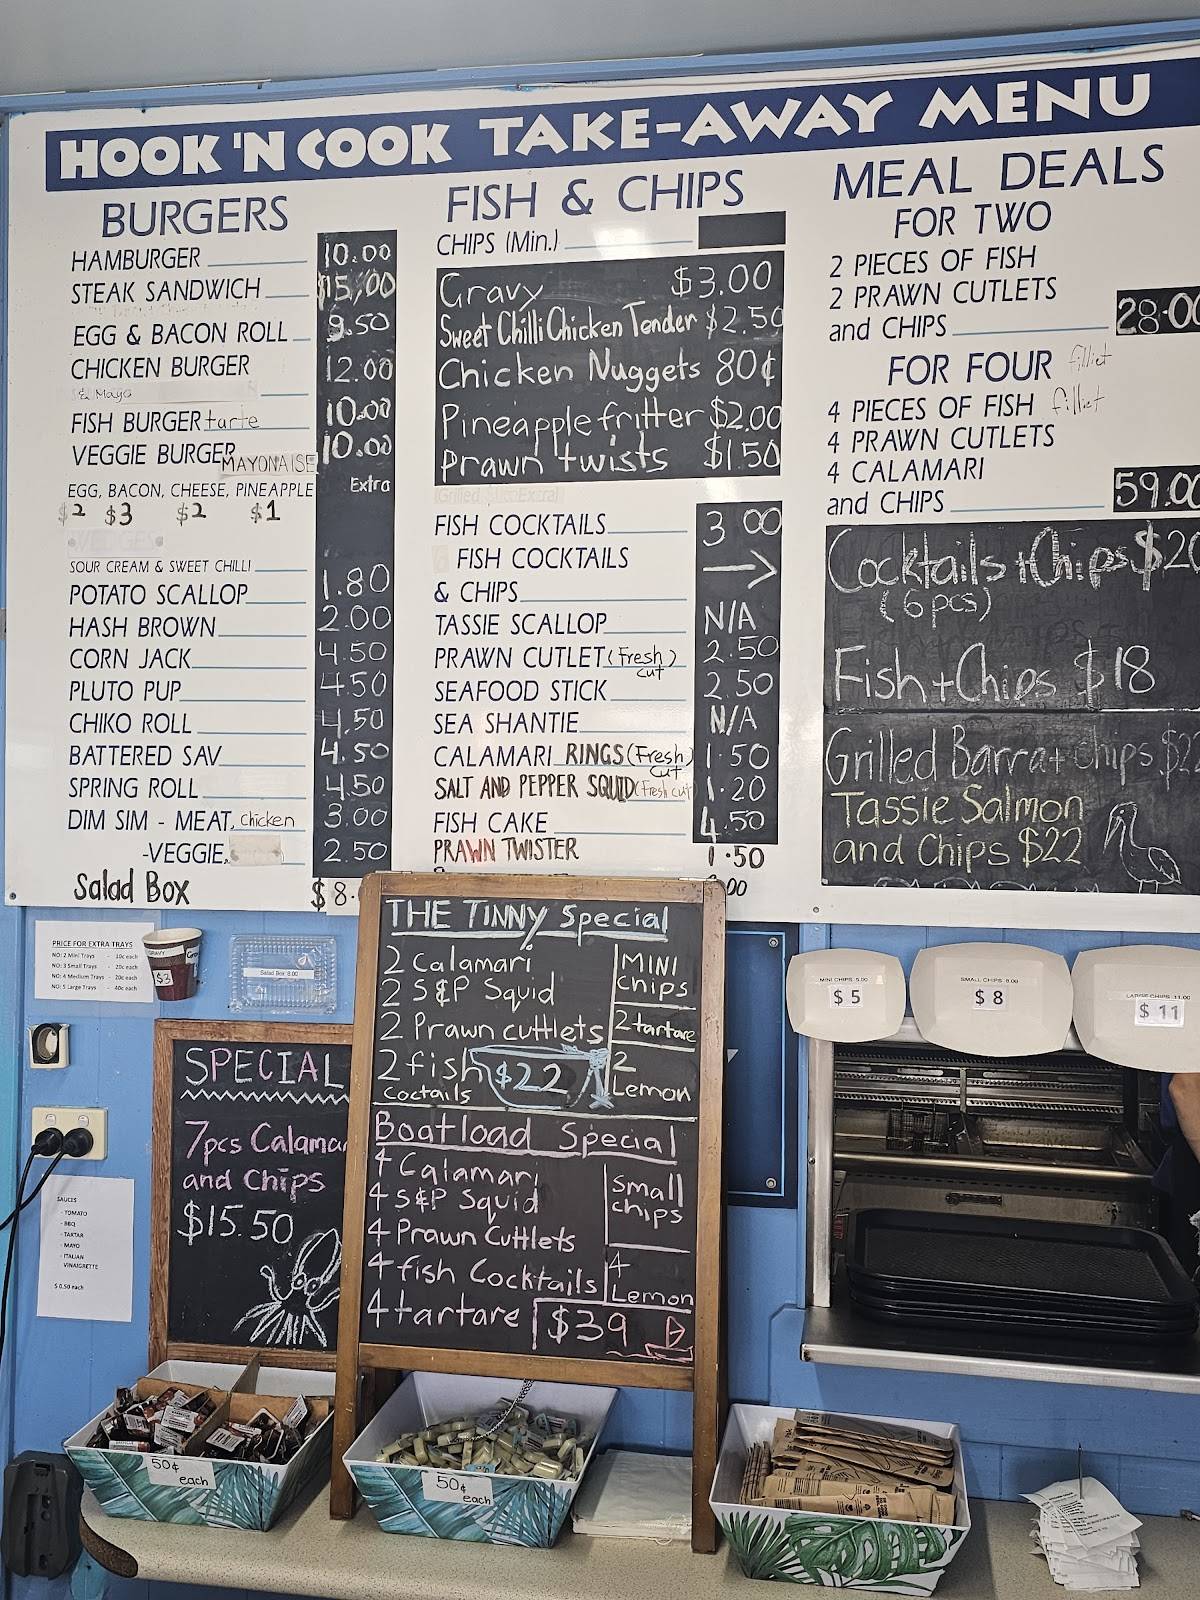 HOOK 'N COOK TAKE-AWAY MENU
BURGERS
HAMBURGER 10.00
STEAK SANDWICH $15,00
EGG & BACON ROLL 9.50
CHICKEN BURGER 12.00
& Mayo
FISH BURGER tarte 10.00
VEGGIE BURGER MAYONAISE 10.00
EGG, BACON, CHEESE, PINEAPPLE Extra
$2 $3 $2 $1
WEDGES
SOUR CREAM & SWEET CHILLI
POTATO SCALLOP 1.80
HASH BROWN 2.00
CORN JACK 4.50
PLUTO PUP 4.50
CHIKO ROLL 4.50
BATTERED SAV 4.50
SPRING ROLL 4.50
DIM SIM - MEAT, chicken 3.00
-VEGGIE, 2.50
Salad Box $8.
FISH & CHIPS
CHIPS (Min.)
Gravy $3.00
Sweet Chilli Chicken Tender $2.50
Chicken Nuggets 80¢
Pineapple fritter $2.00
Prawn twists $1.50
FISH COCKTAILS 3 00
FISH COCKTAILS
& CHIPS →
TASSIE SCALLOP N/A
PRAWN CUTLET (Fresh cut) 2.50
SEAFOOD STICK 2.50
SEA SHANTIE N/A
CALAMARI RINGS (Fresh cut) 1.50
SALT AND PEPPER SQUID (Fresh cut) 1.20
FISH CAKE 4.50
PRAWN TWISTER 1.50
MEAL DEALS
FOR TWO
2 PIECES OF FISH
2 PRAWN CUTLETS
and CHIPS 28.00
FOR FOUR filliet
4 PIECES OF FISH filliet
4 PRAWN CUTLETS
4 CALAMARI
and CHIPS 59.00
Cocktails + Chips $20
(6 pcs)
Fish + Chips $18
Grilled Barra + chips $2
Tassie Salmon
and Chips $22
PRICE FOR EXTRA TRAYS
NO: 2 Mini Trays - 10c each
NO: 3 Small Trays - 20c each
NO: 4 Medium Trays - 20c each
NO: 5 Large Trays - 40c each
GRAVY
$3
Salad Box 8.00
SAUCES
- TOMATO
- BBQ
- TARTAR
- MAYO
- ITALIAN
VINAIGRETTE
$ 0.50 each
SPECIAL
7pcs Calama
and Chips
$15.50
THE TINNY Special
2 Calamari
2 S&P Squid
2 Prawn cuttlets
2 fish
coctails
$22
MINI
chips
2 tartare
2
Lemon
Boatload Special
4 Calamari
4 S&P Squid
4 Prawn Cuttlets
4 fish Cocktails
4 tartare
small
chips
4
Lemon
$39
MINI CHIPS 5.00
$ 5
SMALL CHIPS 8.00
$ 8
LARGE CHIPS 11.00
$ 11
50¢
each
50¢
each